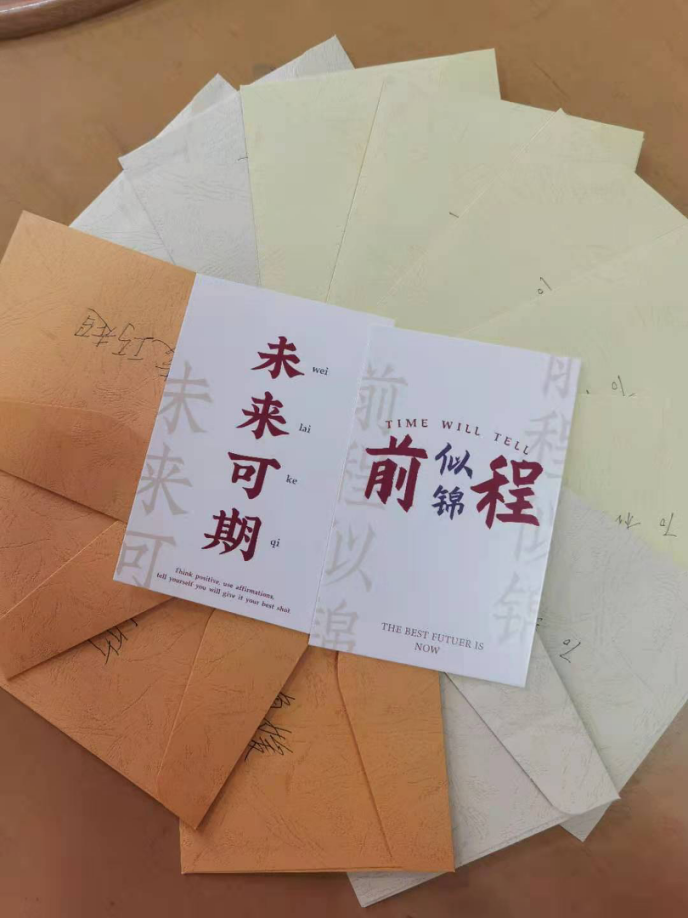 未来可期
wei
lai
ke
qi
未来可
Think positive, use affirmations,
tell yourself you will give it your best shot
前程似锦
TIME WILL TELL
前似锦程
THE BEST FUTUER IS
NOW
前程似锦
To
To
To
To